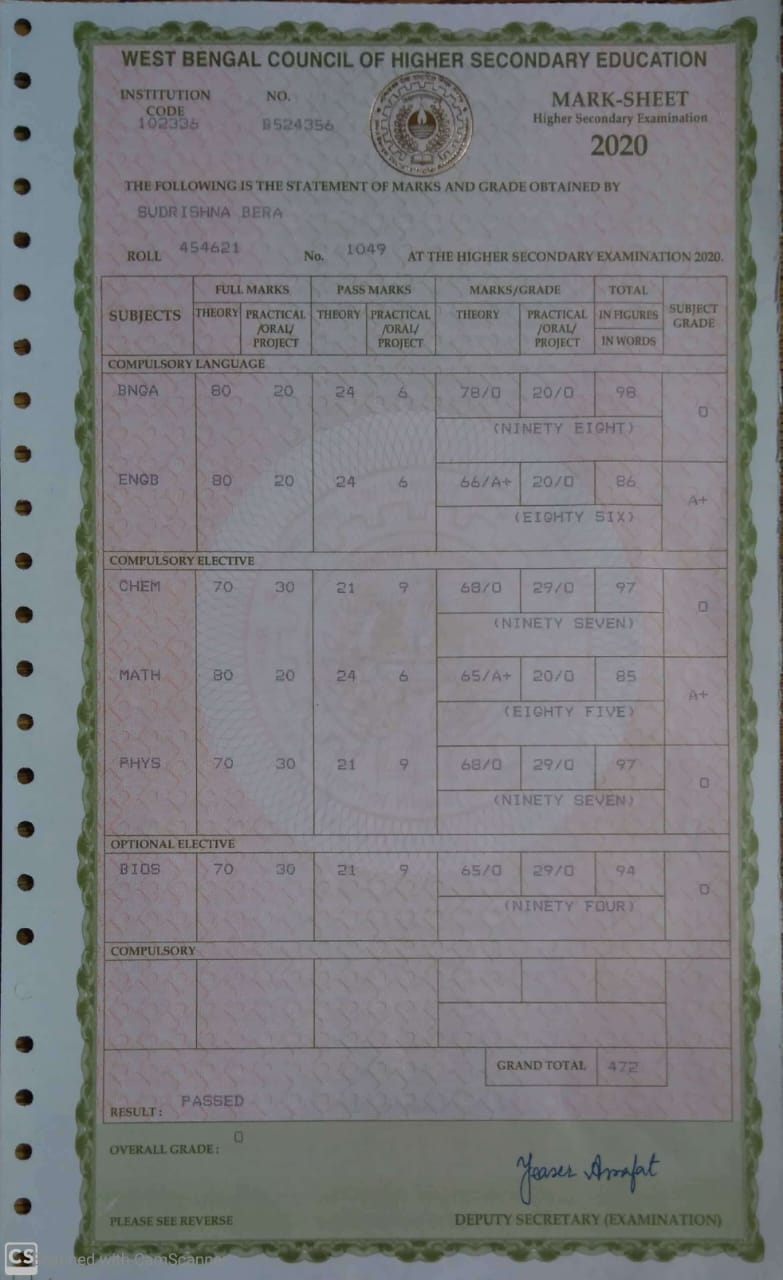 WEST BENGAL COUNCIL OF HIGHER SECONDARY EDUCATION
INSTITUTION CODE NO.
102336 B524356
MARK-SHEET
Higher Secondary Examination
2020
THE FOLLOWING IS THE STATEMENT OF MARKS AND GRADE OBTAINED BY
SUDRISHNA BERA
ROLL 454621 No. 1049 AT THE HIGHER SECONDARY EXAMINATION 2020.
SUBJECTS FULL MARKS PASS MARKS MARKS/GRADE TOTAL SUBJECT GRADE
THEORY PRACTICAL /ORAL/ PROJECT THEORY PRACTICAL /ORAL/ PROJECT THEORY PRACTICAL /ORAL/ PROJECT IN FIGURES
IN WORDS
COMPULSORY LANGUAGE
BNGA 80 20 24 6 78/O 20/O 98 O
(NINETY EIGHT)
ENGB 80 20 24 6 66/A+ 20/O 86 A+
(EIGHTY SIX)
COMPULSORY ELECTIVE
CHEM 70 30 21 9 68/O 29/O 97 O
(NINETY SEVEN)
MATH 80 20 24 6 65/A+ 20/O 85 A+
(EIGHTY FIVE)
PHYS 70 30 21 9 68/O 29/O 97 O
(NINETY SEVEN)
OPTIONAL ELECTIVE
BIOS 70 30 21 9 65/O 29/O 94 O
(NINETY FOUR)
COMPULSORY
GRAND TOTAL 472
RESULT : PASSED
OVERALL GRADE : O
Yeaser Arrafat
PLEASE SEE REVERSE DEPUTY SECRETARY (EXAMINATION)
CS Scanned with CamScanner